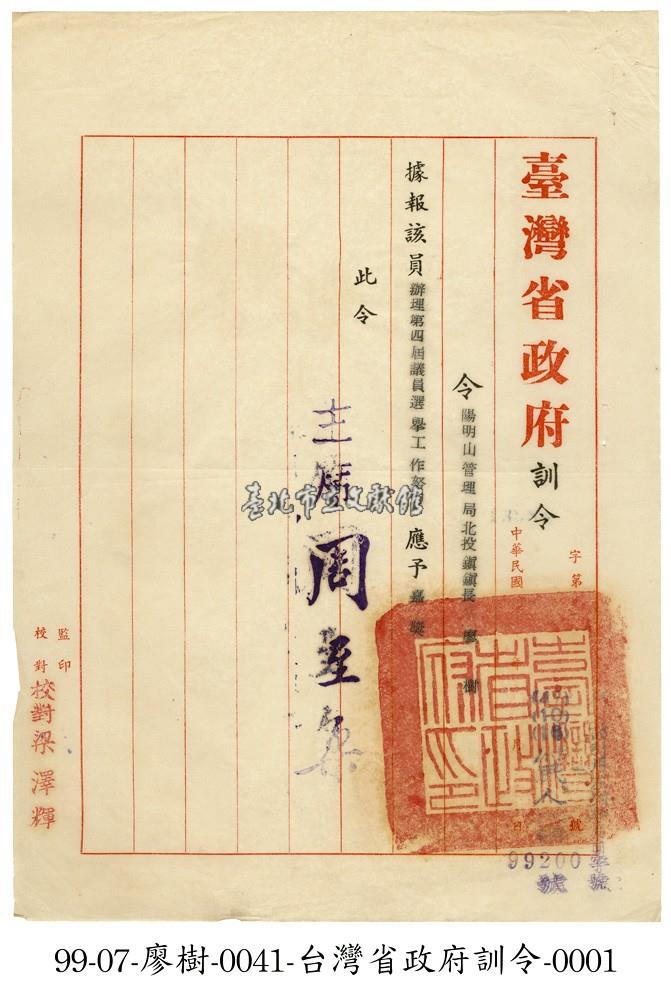 臺灣省政府訓令
字第
中華民國
日
號
99200
號
令陽明山管理局北投鎮鎮長廖樹
據報該員辦理第四屆議員選舉工作努力應予嘉獎
此令
主席周至柔
監印
校對
校對梁澤輝
臺灣省政府印
臺北市立文獻館
99-07-廖樹-0041-台灣省政府訓令-0001